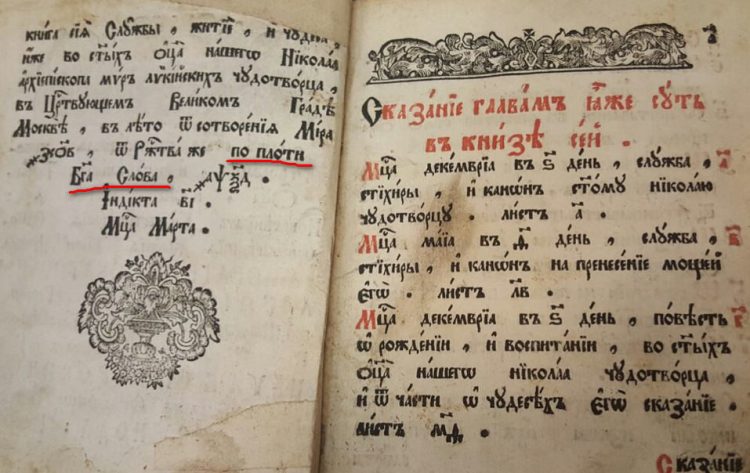 книга сїѧ Службы , житїѐ , и чудеса ,
иже во ст҃ы́хъ ѻц҃а̀ нашегѡ Нїкола́ѧ
архїепископа мѵръ лѵкїйскихъ чудотворца ,
въ Цр҃твующемъ Великомъ Градѣ
Москвѣ , въ лѣто ѿ сотворе́нїѧ Мі́ра
҂зсо҃в , ѿ Рж҃тва́ же по пло́ти
Бг҃а Сло́ва , ҂аѱѯ҃д .
І҆ндїкта в҃і .
Мц҃а Ма́рта .
Сказа́нїе глава́мъ ꙗ҆̀же су́ть
въ кни́зѣ се́й .
Мц҃а деке́мврїа въ ѕ҃ де́нь , слу́жба , а҃
стїхи́ры , и҆ кано́нъ ст҃о́му нїкола́ю
чудотво́рцу . ли́стъ а҃ .
Мц҃а ма́їа въ ѳ҃ де́нь , слу́жба , в҃
стїхи́ры , и҆ кано́нъ на пренесе́нїе моще́й
є҆гѡ̀ . ли́стъ л҃в .
Мц҃а деке́мврїа въ ѕ҃ де́нь , по́вѣсть г҃
ѡ҆ рожде́нїи , и҆ воспита́нїи , во ст҃ы́хъ
ѻ҆ц҃а̀ на́шегѡ нїкола́а чудотво́рца ,
и҆ ѿ ча́сти ѡ҆ чудесѣ́хъ є҆гѡ̀ сказа́нїе .
ли́стъ м҃д .
Сказа́нїе